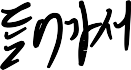 들어가서